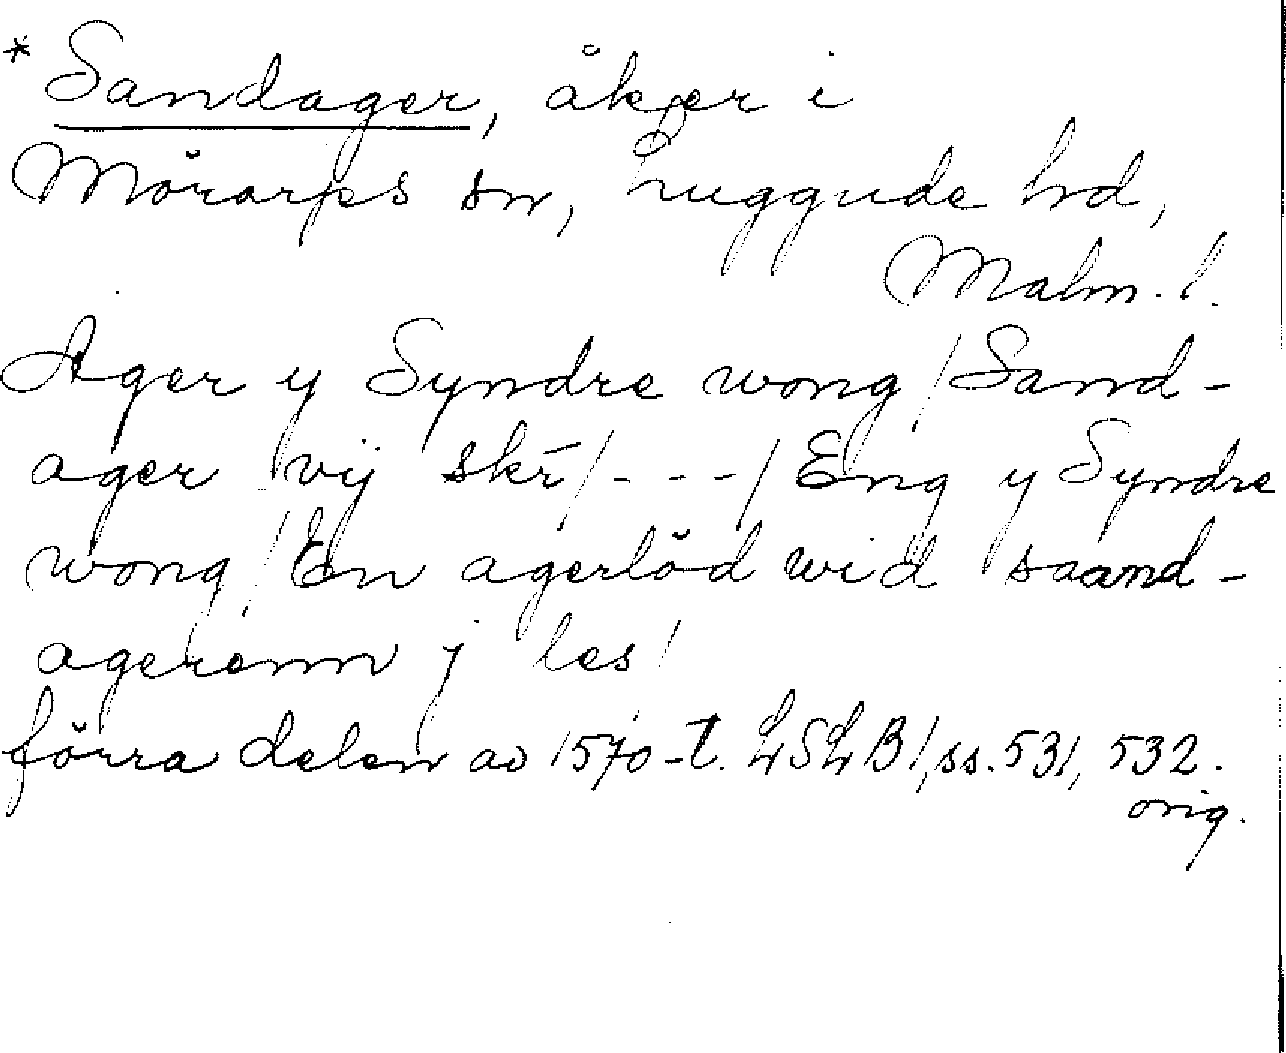 * Sandager, åker i
Mörarps sn, Luggude hd,
Malm. l.
Ager y Syndre wong / Sand-
ager vij skr̄ / - - - / Eng y Syndre
wong / En agerlöd wid saand-
agerenn j les /
förra delen av 1570-t. LSLB 1, ss. 531, 532.
orig.